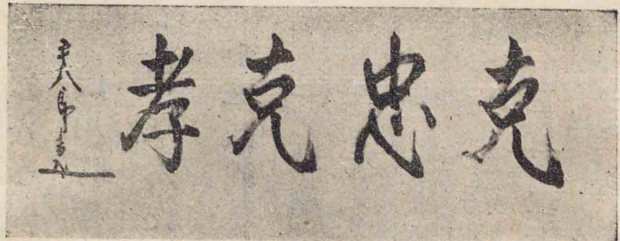 克忠克孝